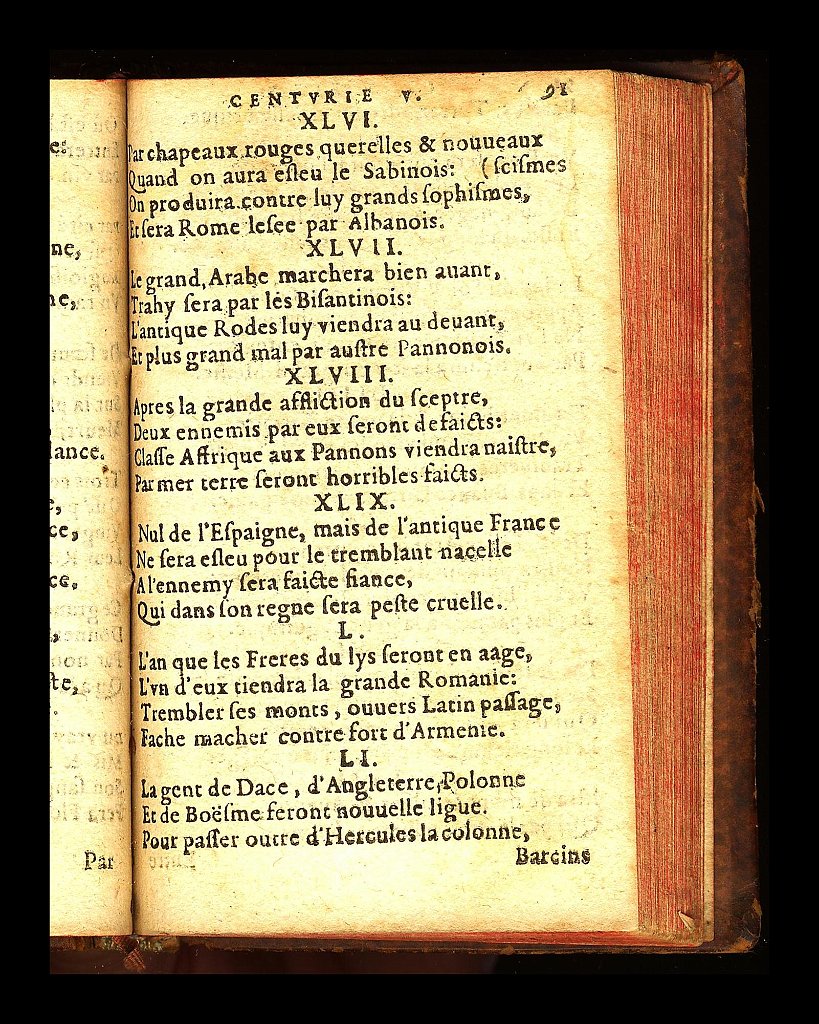 ne,
ne,
lance.
ce,
ce.
Par
CENTVRIE V. 91
XLVI.
Par chapeaux rouges querelles & nouueaux
Quand on aura esleu le Sabinois: (scismes
On produira contre luy grands sophismes,
Et sera Rome lesee par Albanois.
XLVII.
Le grand, Arabe marchera bien auant,
Trahy sera par les Bisantinois:
L'antique Rodes luy viendra au deuant,
Et plus grand mal par austre Pannonois.
XLVIII.
Apres la grande affliction du sceptre,
Deux ennemis par eux seront defaicts:
Classe Affrique aux Pannons viendra naistre,
Par mer terre seront horribles faicts.
XLIX.
Nul de l'Espaigne, mais de l'antique France
Ne sera esleu pour le tremblant nacelle
A l'ennemy sera faicte fiance,
Qui dans son regne sera peste cruelle.
L.
L'an que les Freres du lys seront en aage,
L'vn d'eux tiendra la grande Romanie:
Trembler ses monts, ouuers Latin passage,
Fache macher contre fort d'Armenie.
LI.
La gent de Dace, d'Angleterre, Polonne
Et de Boësme feront nouuelle ligue.
Pour passer outre d'Hercules la colonne,
Barcins